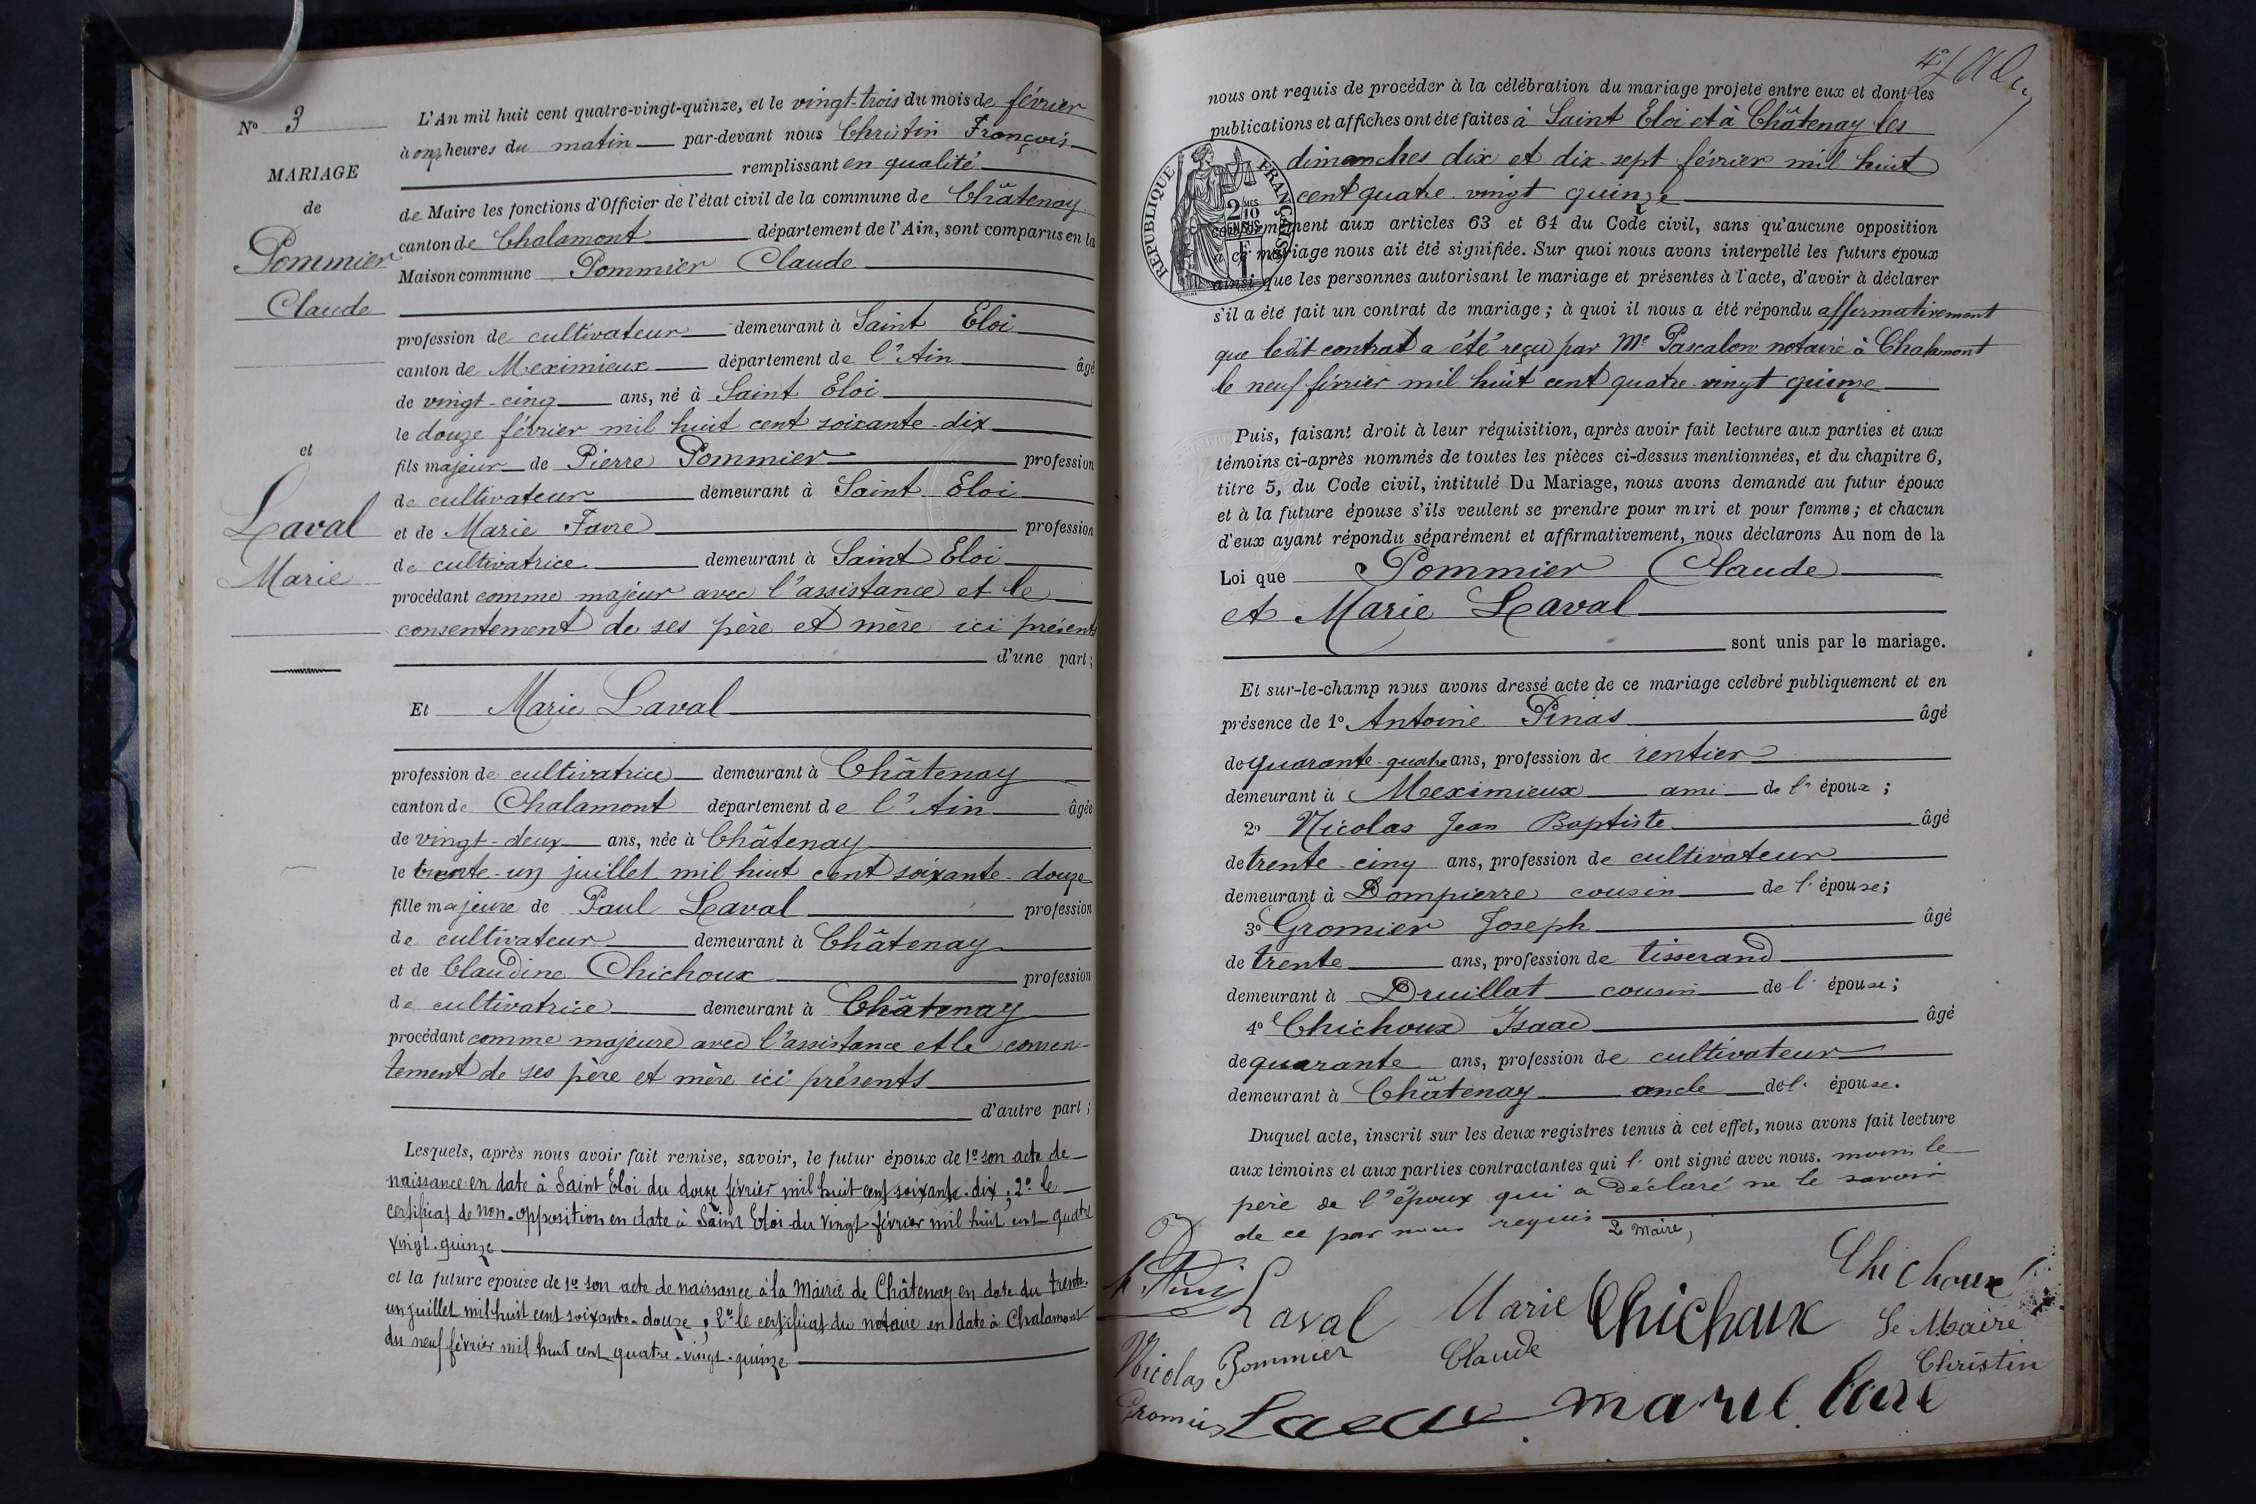 N° 3
MARIAGE
de
Pommier
Claude
et
Laval
Marie
L'An mil huit cent quatre-vingt-quinze, et le vingt-trois du mois de février
à onze heures du matin par-devant nous Christin François
remplissant en qualité
de Maire les fonctions d'Officier de l'état civil de la commune de Châtenay
canton de Chalamont département de l'Ain, sont comparus en la
Maison commune Pommier Claude
profession de cultivateur demeurant à Saint Eloi
canton de Meximieux département de l'Ain âgé
de vingt-cinq ans, né à Saint Eloi
le douze février mil huit cent soixante-dix
fils majeur de Pierre Pommier profession
de cultivateur demeurant à Saint Eloi
et de Marie Favre profession
de cultivatrice demeurant à Saint Eloi
procédant comme majeur avec l'assistance et le
consentement de ses père et mère ici présents
d'une part;
Et Marie Laval
profession de cultivatrice demeurant à Châtenay
canton de Chalamont département de l'Ain âgée
de vingt-deux ans, née à Châtenay
le trente-un juillet mil huit cent soixante-douze
fille majeure de Paul Laval profession
de cultivateur demeurant à Châtenay
et de Claudine Chichoux profession
de cultivatrice demeurant à Châtenay
procédant comme majeure avec l'assistance et le consen-
tement de ses père et mère ici présents
d'autre part;
Lesquels, après nous avoir fait remise, savoir, le futur époux de 1° son acte de
naissance en date à Saint Eloi du douze février mil huit cent soixante-dix; 2° le
certificat de non-opposition en date à Saint Eloi du vingt février mil huit cent quatre
vingt-quinze
et la future épouse de 1° son acte de naissance à la Mairie de Châtenay en date du trente-
un juillet mil huit cent soixante-douze; 2° le certificat du notaire en date à Chalamont
du neuf février mil huit cent quatre-vingt-quinze
nous ont requis de procéder à la célébration du mariage projeté entre eux et dont les
publications et affiches ont été faites à Saint Eloi et à Châtenay les
dimanches dix et dix-sept février mil huit
cent quatre-vingt quinze
RÉPUBLIQUE FRANÇAISE
2/10 EN SUS
conformément aux articles 63 et 64 du Code civil, sans qu'aucune opposition
à ce mariage nous ait été signifiée. Sur quoi nous avons interpellé les futurs époux
ainsi que les personnes autorisant le mariage et présentes à l'acte, d'avoir à déclarer
s'il a été fait un contrat de mariage; à quoi il nous a été répondu affirmativement
que ledit contrat a été reçu par Me Pascalon notaire à Chalamont
le neuf février mil huit cent quatre-vingt quinze
Puis, faisant droit à leur réquisition, après avoir fait lecture aux parties et aux
témoins ci-après nommés de toutes les pièces ci-dessus mentionnées, et du chapitre 6,
titre 5, du Code civil, intitulé Du Mariage, nous avons demandé au futur époux
et à la future épouse s'ils veulent se prendre pour mari et pour femme; et chacun
d'eux ayant répondu séparément et affirmativement, nous déclarons Au nom de la
Loi que Pommier Claude
et Marie Laval
sont unis par le mariage.
Et sur-le-champ nous avons dressé acte de ce mariage célébré publiquement et en
présence de 1° Antoine Pinas âgé
de quarante-quatre ans, profession de rentier
demeurant à Meximieux ami de l'époux;
2° Nicolas Jean Baptiste âgé
de trente-cinq ans, profession de cultivateur
demeurant à Dompierre cousin de l'épouse;
3° Gromier Joseph âgé
de trente ans, profession de tisserand
demeurant à Druillat cousin de l'épouse;
4° Chichoux Isaac âgé
de quarante ans, profession de cultivateur
demeurant à Châtenay oncle de l'épouse.
Duquel acte, inscrit sur les deux registres tenus à cet effet, nous avons fait lecture
aux témoins et aux parties contractantes qui l'ont signé avec nous. moins le
père de l'époux qui a déclaré ne le savoir
de ce par nous requis
Laval Marie Chichoux Chichoux
Le Maire
Nicolas Pommier Claude Christin
Gromier Laval marie favre